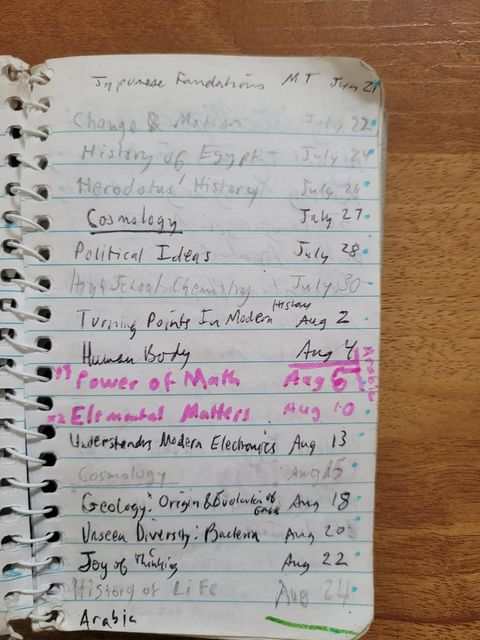 Japanese Foundations MT Jun 21
Change & Motion July 22
History of Egypt July 24
Herodotus' History July 26
Cosmology July 27
Political Ideas July 28
High School Chemistry July 30
Turning Points In Modern History Aug 2
Human Body Aug 4
Power of Math Aug 6
Arabic
Elemental Matters Aug 10
Understanding Modern Electronics Aug 13
Cosmology Aug 15
Geology: Origin & Evolution of Earth Aug 18
Unseen Diversity: Bacteria Aug 20
Joy of Thinking Aug 22
History of Life Aug 24
Arabia